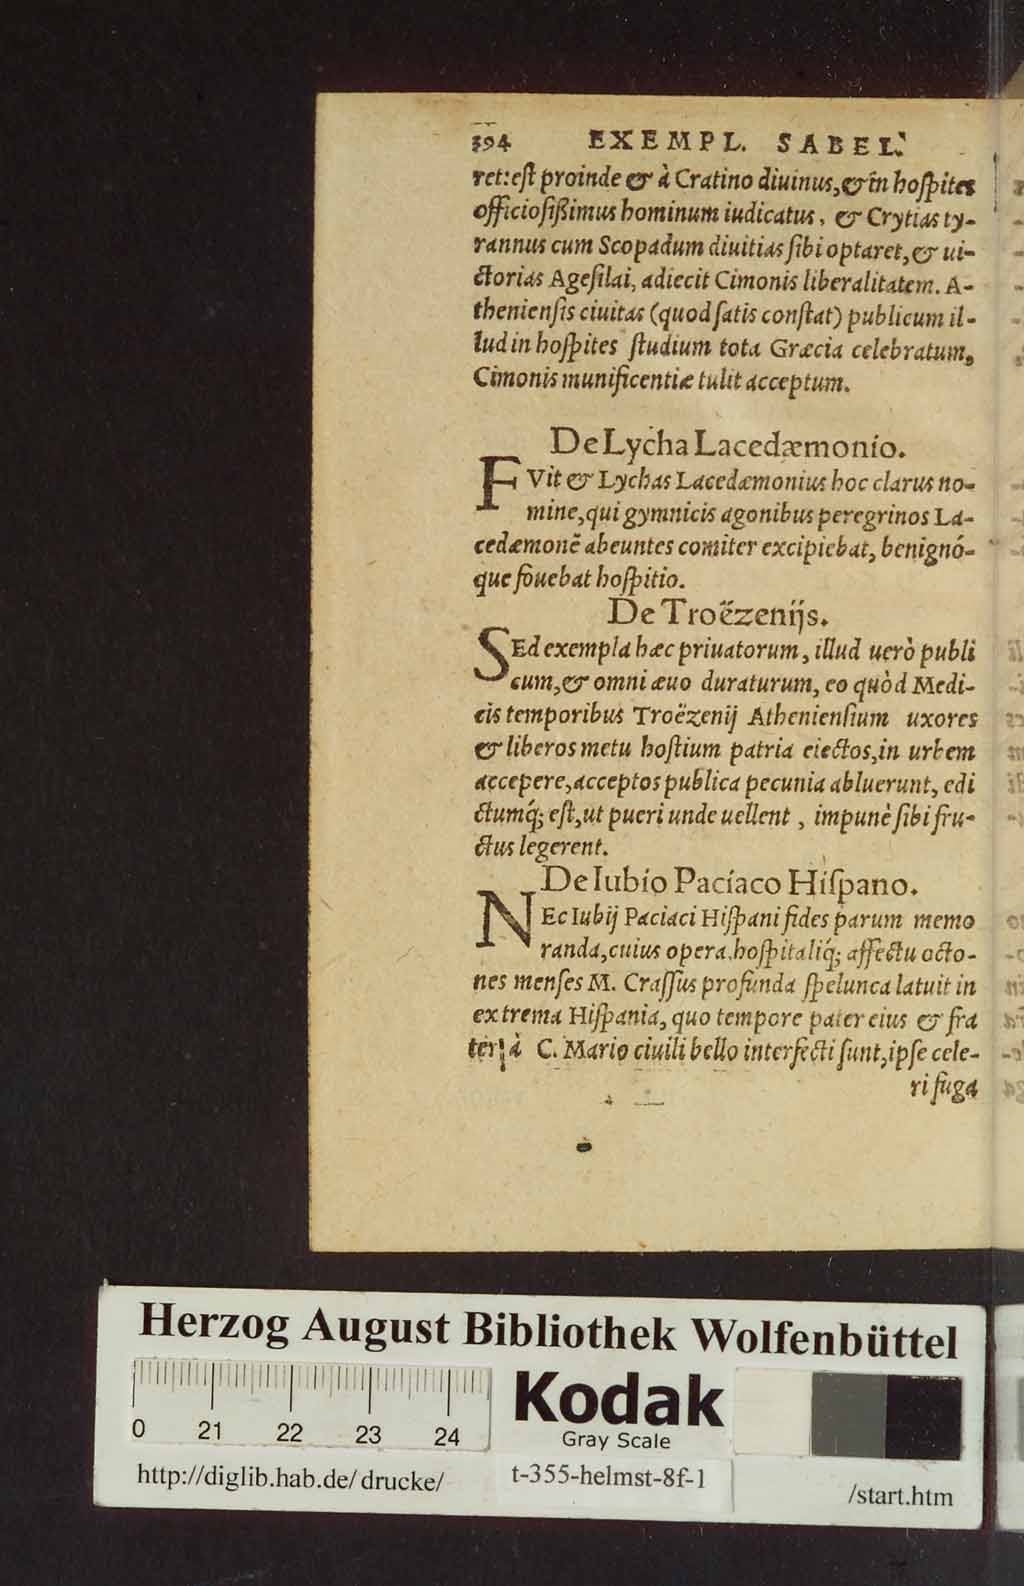 394 EXEMPL. SABEL.
ret: est proinde & à Cratino diuinus, & in hospites
officiosißimus hominum iudicatus, & Crytias ty-
rannus cum Scopadum diuitias sibi optaret, & ui-
ctorias Agesilai, adiecit Cimonis liberalitatem. A-
theniensis ciuitas (quod satis constat) publicum il-
lud in hospites studium tota Græcia celebratum,
Cimonis munificentiæ tulit acceptum.
De Lycha Lacedæmonio.
FVit & Lychas Lacedæmonius hoc clarus no-
mine, qui gymnicis agonibus peregrinos La-
cedæmonẽ abeuntes comiter excipiebat, benignó-
que fouebat hospitio.
De Troëzenijs.
SEd exempla hæc priuatorum, illud uerò publi
cum, & omni æuo duraturum, eo quòd Medi-
cis temporibus Troëzenij Atheniensium uxores
& liberos metu hostium patria eiectos, in urbem
accepere, acceptos publica pecunia abluerunt, edi
ctumq́; est, ut pueri unde uellent, impunè sibi fru-
ctus legerent.
De Iubio Paciaco Hispano.
NEc Iubij Paciaci Hispani fides parum memo
randa, cuius opera, hospitaliq́; affectu octo-
nes menses M. Crassus profunda spelunca latuit in
extrema Hispania, quo tempore pater eius & fra
ter à C. Mario ciuili bello interfecti sunt, ipse cele-
ri fuga
Herzog August Bibliothek Wolfenbüttel
0 21 22 23 24
Kodak
Gray Scale
http://diglib.hab.de/drucke/ t-355-helmst-8f-1 /start.htm